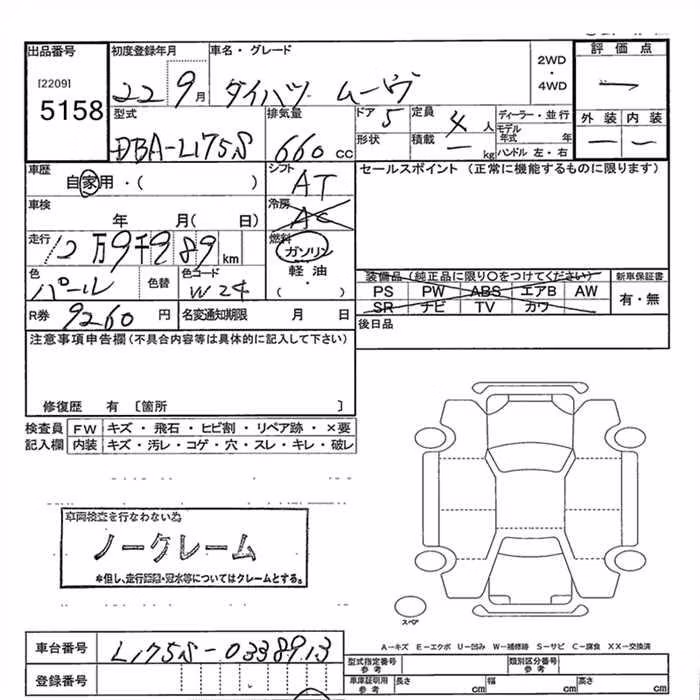 出品番号
[2209]
5158
初度登録年月
22 9月
車名・グレード
ダイハツ ムーヴ
2WD
・
4WD
評価点
ー
型式
DBA-L175S
排気量
660 cc
ドア 5
形状
定員 4 人
積載 ー kg
ディーラー・並行
モデル年式 年
ハンドル 左・右
外装 内装
ー ー
車歴
自家用・( )
シフト
AT
セールスポイント (正常に機能するものに限ります)
車検
年 月( 日)
冷房
AC
走行
12万9千989 km
燃料
ガソリン
軽油
( )
色
パール
色替
色コード
W24
装備品 (純正品に限り○をつけてください)
PS PW ABS エアB AW
SR ナビ TV カワ
新車保証書
有・無
R券 9260 円
名変通知期限 月 日
後日品
注意事項申告欄(不具合内容等は具体的に記入して下さい)
修復歴 有 〔箇所 〕
検査員記入欄
FW キズ・飛石・ヒビ割・リペア跡・×要
内装 キズ・汚レ・コゲ・穴・スレ・キレ・破レ
車両検査を行なわない為
ノークレーム
*但し、走行距離・冠水等についてはクレームとする。
スペア
A−キズ E−エクボ U−凹み W−補修跡 S−サビ C−腐食 XX−交換済
車台番号
L175S-0338913
登録番号
型式指定番号 参考
類別区分番号 参考
車庫証明用 参考
長さ cm
幅 cm
高さ cm